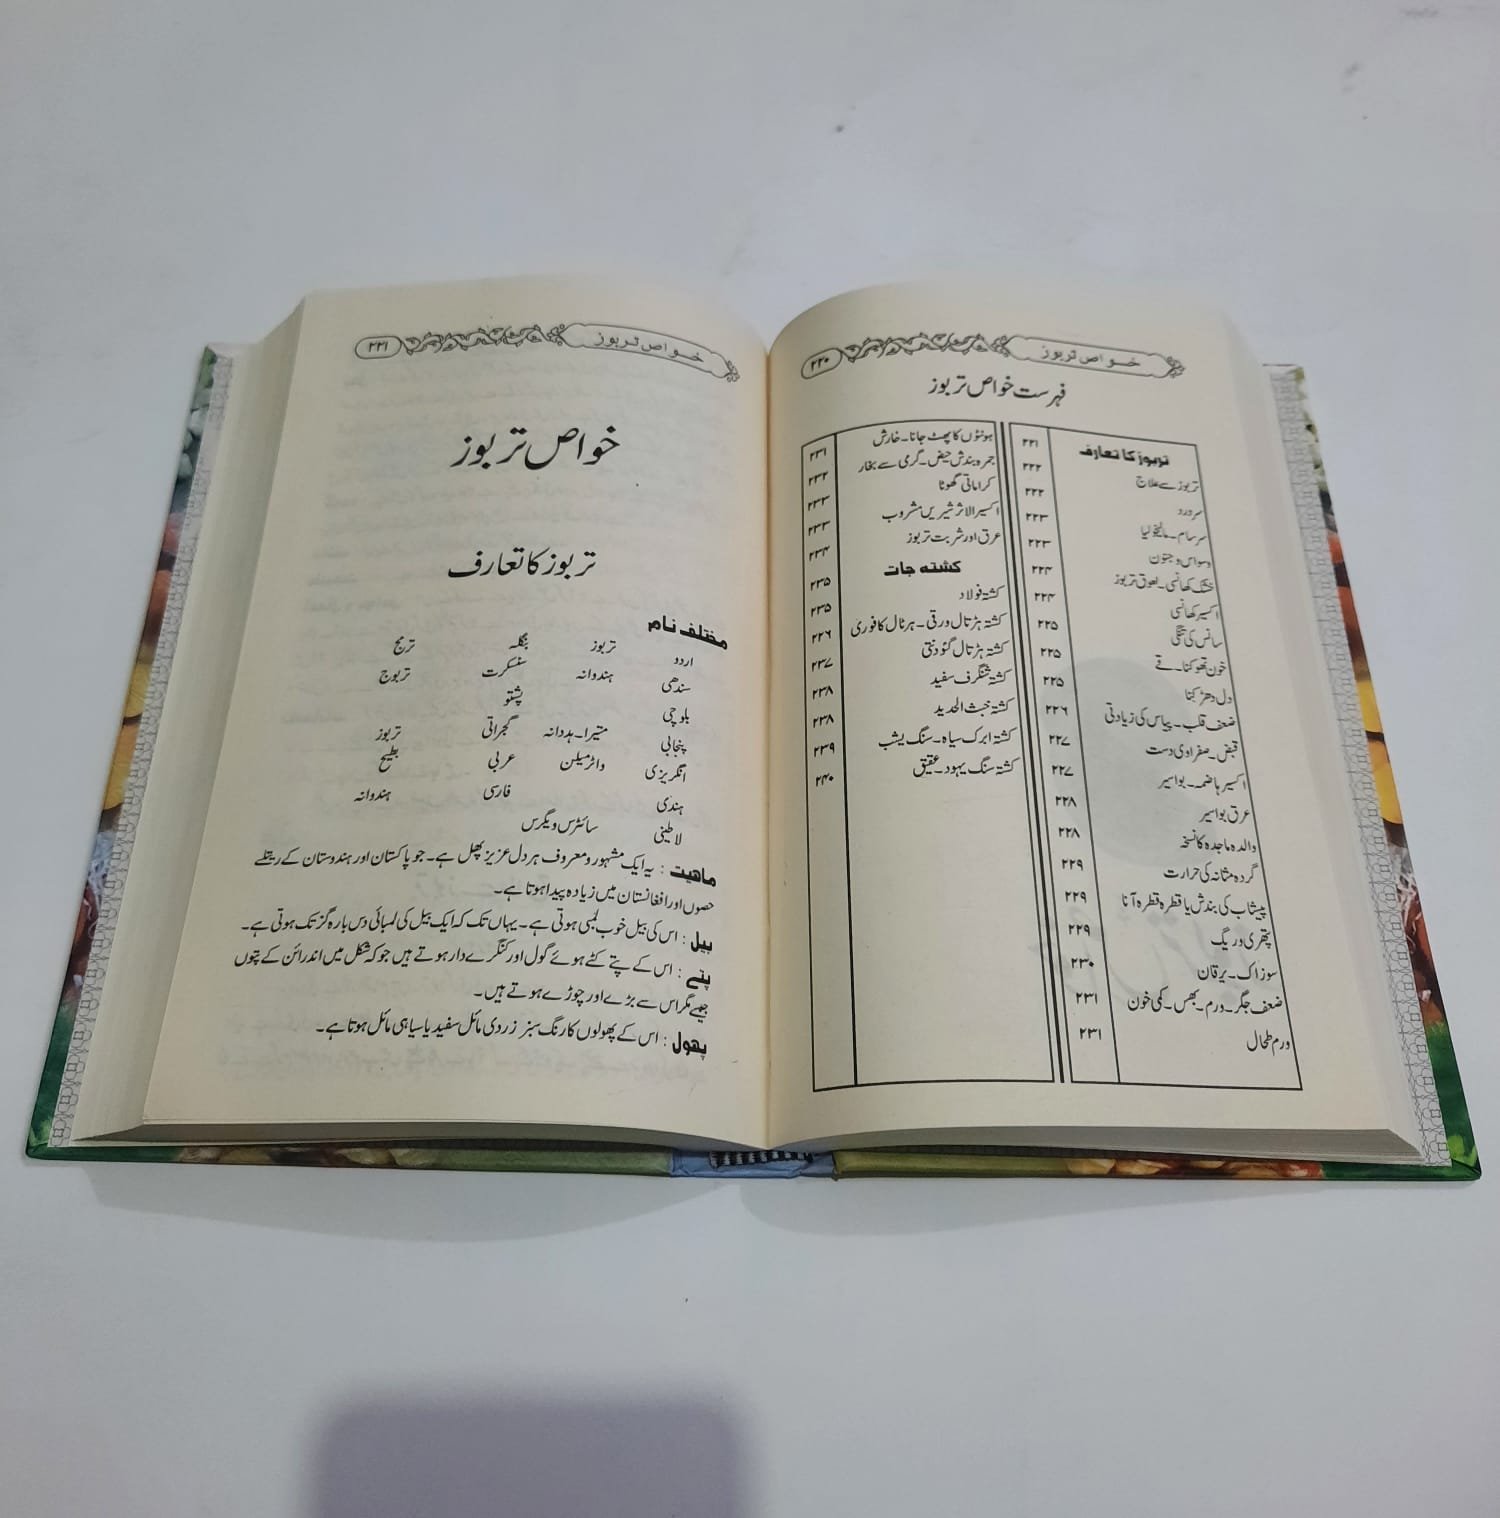 خواص تربوز ۲۲۰
فہرست خواص تربوز
تربوز کا تعارف ۲۲۱
تربوز سے علاج ۲۲۲
سر درد ۲۲۲
سرسام۔مالیخولیا ۲۲۳
وسواس و جنون ۲۲۳
خشک کھانسی۔لعوق تربوز ۲۲۴
اکسیر کھانسی ۲۲۴
سانس کی تنگی ۲۲۵
خون تھوکنا۔قے ۲۲۵
دل دھڑکنا ۲۲۵
ضعف قلب۔پیاس کی زیادتی ۲۲۶
قبض۔صفراوی دست ۲۲۷
اکسیر ہاضمہ۔بواسیر ۲۲۷
عرق بواسیر ۲۲۸
والدہ ماجدہ کا نسخہ ۲۲۸
گردہ مثانہ کی حرارت ۲۲۹
پیشاب کی بندش یا قطرہ قطرہ آنا ۲۲۹
پتھری و ریگ ۲۲۹
سوزاک۔یرقان ۲۳۰
ضعف جگر۔ورم۔بھس۔کمی خون ۲۳۱
ورم طحال ۲۳۱
ہونٹوں کا پھٹ جانا۔خارش ۲۳۱
جمرہ بندش حیض۔گرمی سے بخار ۲۳۲
کراماتی گھوٹا ۲۳۳
اکسیر الاثر شیریں مشروب ۲۳۳
عرق اور شربت تربوز ۲۳۴
کشتہ جات
کشتہ فولاد ۲۳۵
کشتہ ہڑتال ورقی۔ہرٹال کافوری ۲۳۵
کشتہ ہڑتال گئودنتی ۲۲۶
کشتہ شنگرف سفید ۲۳۷
کشتہ خبث الحدید ۲۳۸
کشتہ ابرک سیاہ۔سنگ یشب ۲۳۸
کشتہ سنگ یہود۔عقیق ۲۳۹
۲۴۰
خواص تربوز ۲۲۱
خواص تربوز
تربوز کا تعارف
مختلف نام
اردو تربوز بنگلہ ترمج
سندھی ہندوانہ سنسکرت تربوج
بلوچی پشتو
پنجابی متیرا۔ہدوانہ گجراتی تربوز
انگریزی واٹرمیلن عربی بطیخ
ہندی فارسی ہندوانہ
لاطینی سائٹرس ویگرس
ماھیت : یہ ایک مشہور و معروف ہر دل عزیز پھل ہے۔ جو پاکستان اور ہندوستان کے ریتلے
حصوں اور افغانستان میں زیادہ پیدا ہوتا ہے۔
بیل : اس کی بیل خوب لمبی ہوتی ہے۔ یہاں تک کہ ایک بیل کی لمبائی دس بارہ گز تک ہوتی ہے۔
پتے : اس کے پتے کٹے ہوئے گول اور کنگرے دار ہوتے ہیں جو کہ شکل میں اندرائن کے پتوں
جیسے مگر اس سے بڑے اور چوڑے ہوتے ہیں۔
پھول : اس کے پھولوں کا رنگ سبز زردی مائل سفید یا سیاہی مائل ہوتا ہے۔